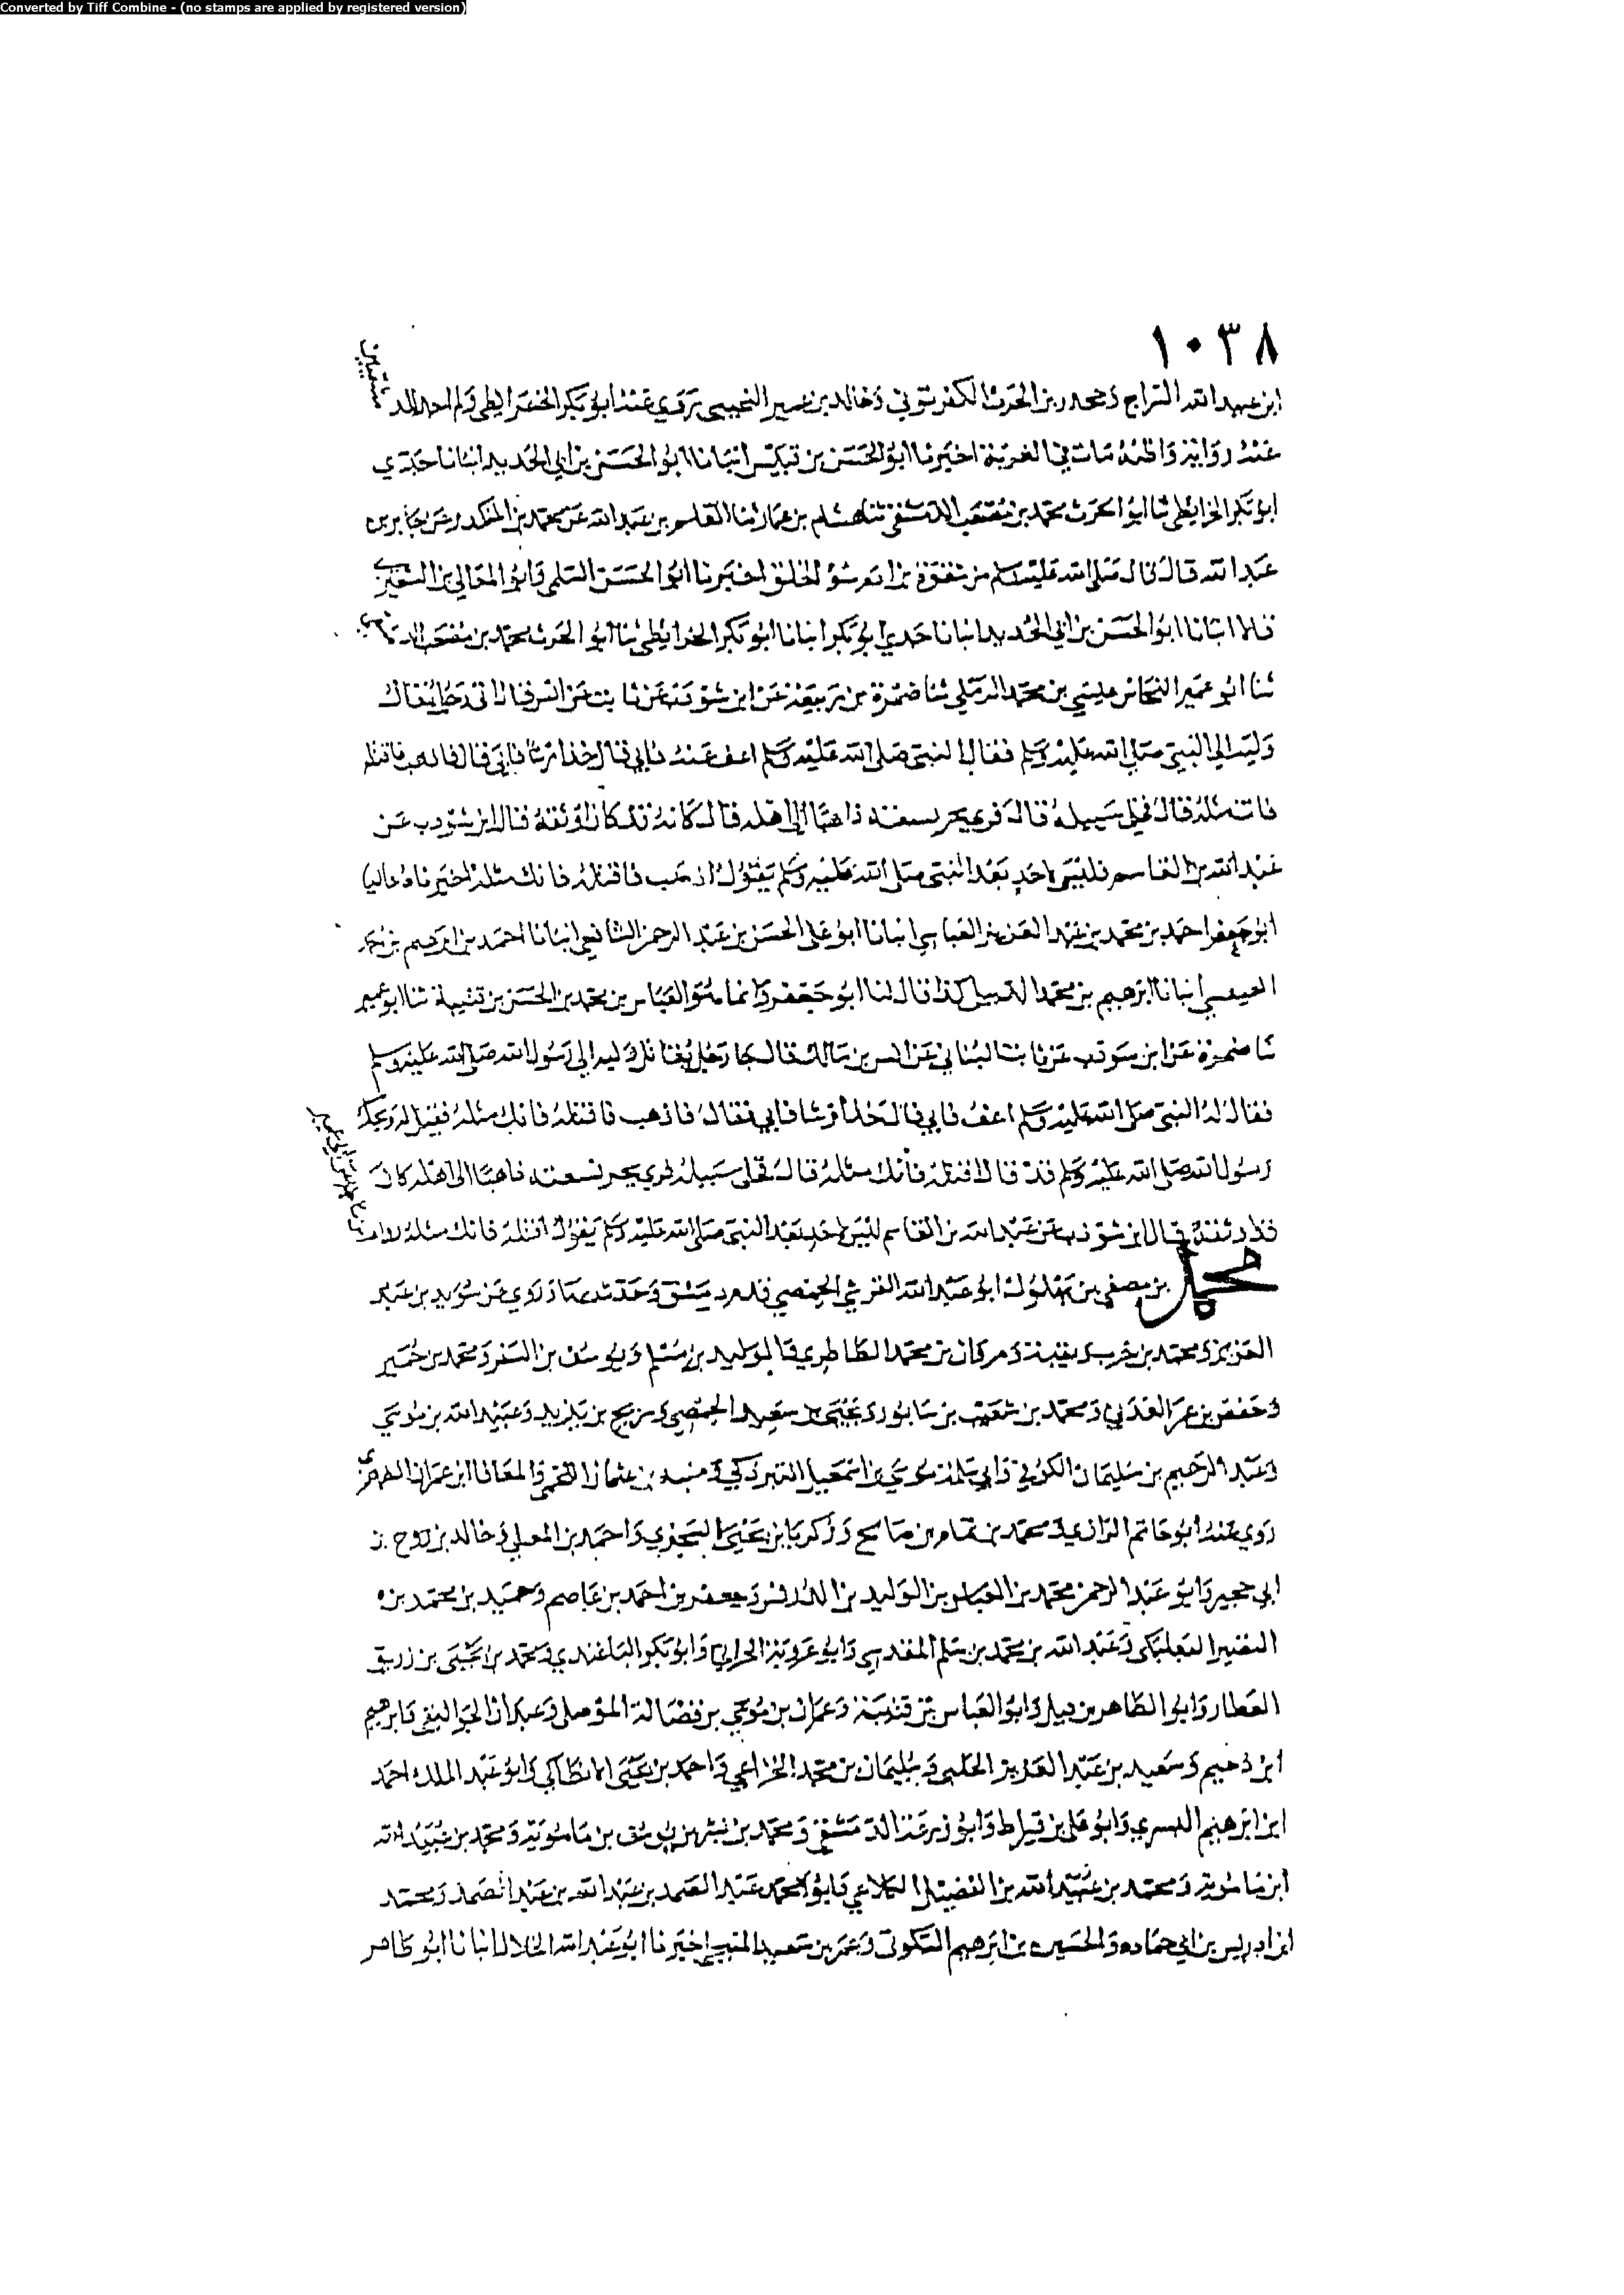 Converted by Tiff Combine - (no stamps are applied by registered version)
١٠٣٨
ابن عبد الله السراج ومحمد بن الحرث الكفرتوثي وخالد بن النجيبي يروي عنه ابو بكر الخرايطي ولم اجد للدمشقيين
عنه رواية واظنه مات في الغربة اخبرنا ابو الحسن بن قبيس انبانا ابو الحسن بن ابي الحديد انبانا جدي
ابو بكر الخرايطي ثنا ابو الحرث محمد بن مصعب الدمشقي ثنا هشام بن عمار ثنا القاسم بن عبد الله عن محمد بن المنكدر عن جابر بن
عبد الله قال قال صلى الله عليه وسلم من شقوة بن ادم سؤ الخلق اخبرنا ابو الحسن السلمي وابو المعالي بن الشعيري
قالا انبانا ابو الحسن بن ابي الحديد انبانا جدي ابو بكر انبانا ابو بكر الخرايطي ثنا ابو الحرث محمد بن مصعب
ثنا ابو عمير النحاس عيسى بن محمد الرملي ثنا ضمرة بن ربيعة عن ابن شوذب عن ثابت عن انس قال اتى رجل بقاتل
وليه الى النبي صلى الله عليه وسلم فقال النبي صلى الله عليه وسلم اعف عنه فابى قال خذ ارشا فابى قال اذهب فاقتله
فانك مثله قال فخلى سبيله قال فرئي يجر نسعته ذاهبا الى اهله قال كانه قد كان اوثقه قال ابن شوذب عن
عبد الله بن القاسم فليس لاحد بعد النبي صلى الله عليه وسلم يقول اذهب فاقتله فانك مثله اخبرناه عاليا
ابو جعفر احمد بن محمد بن عبد العزيز العباسي انبانا ابو علي الحسن بن عبد الرحمن الشافعي انبانا احمد بن ابرهيم بن احمد
العبقسي انبانا ابرهيم بن محمد كذا قال لنا ابو جعفر وانما هو العباس بن محمد بن الحسن بن قتيبة ثنا ابو عمير
ثنا ضمرة عن ابن شوذب عن ثابت البناني عن انس بن مالك قال جا رجل بقاتل وليه الى رسول الله صلى الله عليه وسلم
فقال له النبي صلى الله عليه وسلم اعف فابى قال خذ ارشا فابى فقال فاذهب فاقتله فانك مثله فقيل له ويحك
رسول الله صلى الله عليه وسلم قد قال اقتله فانك مثله قال فخلى سبيله فرئي يجر نسعته ذاهبا الى اهله كان
قد اوثقه قال ابن شوذب عن عبد الله بن القاسم ليس لاحد بعد النبي صلى الله عليه وسلم يقول اقتله فانك مثله
محمد بن مصفى بن بهلول ابو عبد الله القرشي الحمصي قدم دمشق وحدث بها وروي عن سويد بن عبد
العزيز ومحمد بن حرب وبقية ومروان بن محمد الطاطري والوليد بن مسلم ويوسف بن السفر ومحمد بن حمير
وحفص بن عمر العدني ومحمد بن شعيب بن شابور ويحيى بن سعيد الحمصي وسريج بن يزيد وعبيد الله بن موسى
وعبد الرحيم بن سليمان الكوفي وابي سلمة موسى بن اسمعيل التبوذكي ومنبه بن عثمان اللخمي والمعافا ابن عمران الظهري
روي عنه ابو حاتم الرازي ومحمد بن تمام بن صالح وزكريا بن يحيى السجزي واحمد بن المعلى وخالد بن روح بن
ابي حجير وابو عبد الرحمن محمد بن العباس بن الوليد بن الدرفس وجعفر بن احمد بن عاصم وحميد بن محمد بن
النضير البعلبكي وعبد الله بن محمد بن سلم المقدسي وابو عروبة الحراني وابو بكر الباغندي ومحمد بن يحيى بن رزيق
العطار وابو الطاهر بن فيل وابو العباس بن قتيبة وعمران بن موسى بن فضالة الموصلي وعبدان الجواليقي وابرهيم
ابن دحيم وسعيد بن عبد العزيز الحلبي وسليمان بن محمد الخزاعي واحمد بن يحيى الانطاكي وابو عبد الملك احمد
ابن ابرهيم البسري وابو علي بن قيراط وابو زرعة الدمشقي ومحمد بن بشر بن يوسف بن مامويه ومحمد بن عبيد الله
ومحمد بن عبيد الله بن الفضيل الكلاعي وابو محمد عبد الصمد بن عبد الله بن عبد الصمد ومحمد
ابن ادريس بن ابي حماده والحسين بن ابرهيم السكوني وعمر بن سعيد المنبجي اخبرنا ابو عبد الله الخلال انبانا ابو طاهر